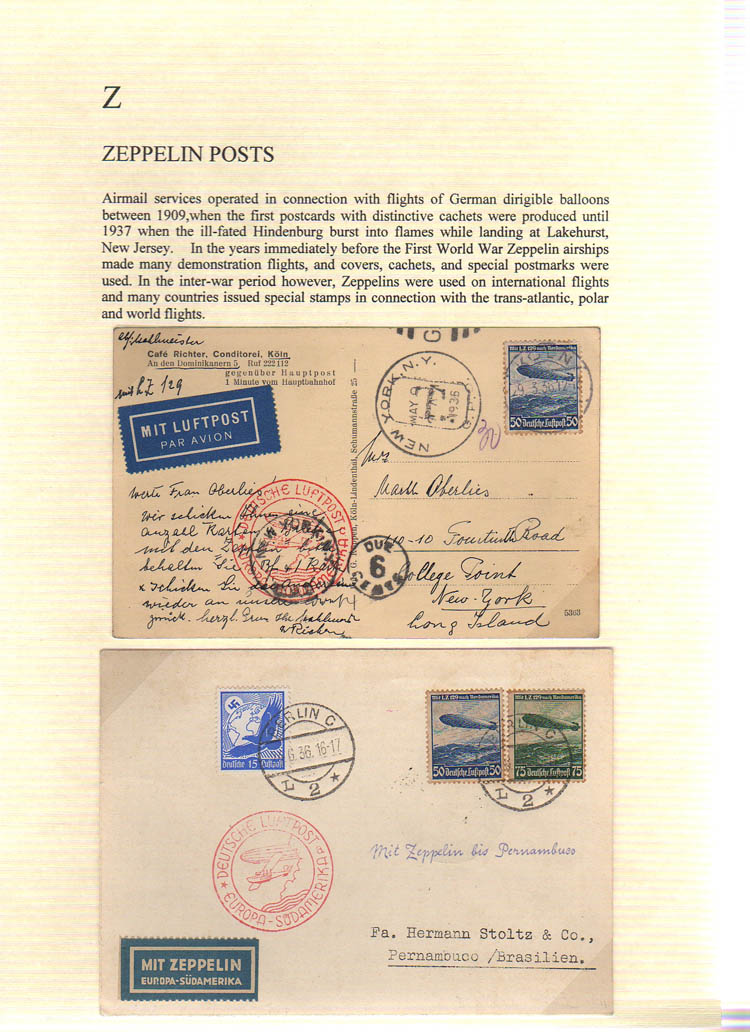 Z
ZEPPELIN POSTS
Airmail services operated in connection with flights of German dirigible balloons
between 1909,when the first postcards with distinctive cachets were produced until
1937 when the ill-fated Hindenburg burst into flames while landing at Lakehurst,
New Jersey. In the years immediately before the First World War Zeppelin airships
made many demonstration flights, and covers, cachets, and special postmarks were
used. In the inter-war period however, Zeppelins were used on international flights
and many countries issued special stamps in connection with the trans-atlantic, polar
and world flights.
Café Richter, Conditorei, Köln
An den Dominikanern 5, Ruf 222112
gegenüber Hauptpost
1 Minute vom Hauptbahnhof
mit LZ 129
MIT LUFTPOST
PAR AVION
Werte Frau Oberlies!
Wir schicken Ihnen eine
anzahl Karten
mit dem Zeppelin bitte
behalten Sie
schicken Sie
wieder an unsere
zurück. herzl. Gruss
Köln-Lindenthal, Schumannstraße 25
DEUTSCHE LUFTPOST
NEW YORK, N.Y.
MAY 9
1936
Mit L.Z. 129 nach Nordamerika
50 Deutsche Luftpost 50
Martha Oberlies
110-10 Fourteenth Road
College Point
New-York
Long Island
DUE
6
CENTS
5363
Deutsche 15 Luftpost
BERLIN C
6.36.16-17
L 2 *
Mit L.Z. 129 nach Nordamerika
50 Deutsche Luftpost 50
Mit L.Z. 129 nach Nordamerika
75 Deutsche Luftpost 75
BERLIN C
L 2 *
DEUTSCHE LUFTPOST
EUROPA-SÜDAMERIKA
Mit Zeppelin bis Pernambuco
Fa. Hermann Stoltz & Co.,
Pernambuco /Brasilien.
MIT ZEPPELIN
EUROPA-SÜDAMERIKA